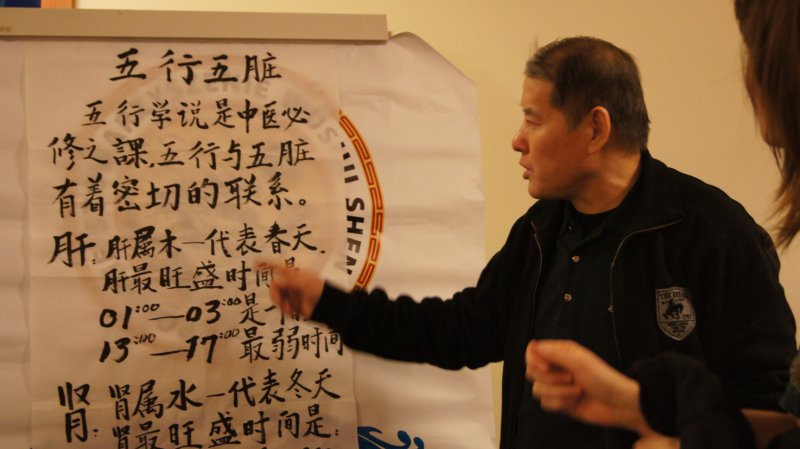 五行五脏
五行学说是中医必
修之課,五行与五脏
有着密切的联系。
肝:肝属木一代表春天,
肝最旺盛时间是
01:00—03:00是一
13:00—17:00最弱时间
肾:肾属水一代表冬天
肾最旺盛时间是:
SHEN